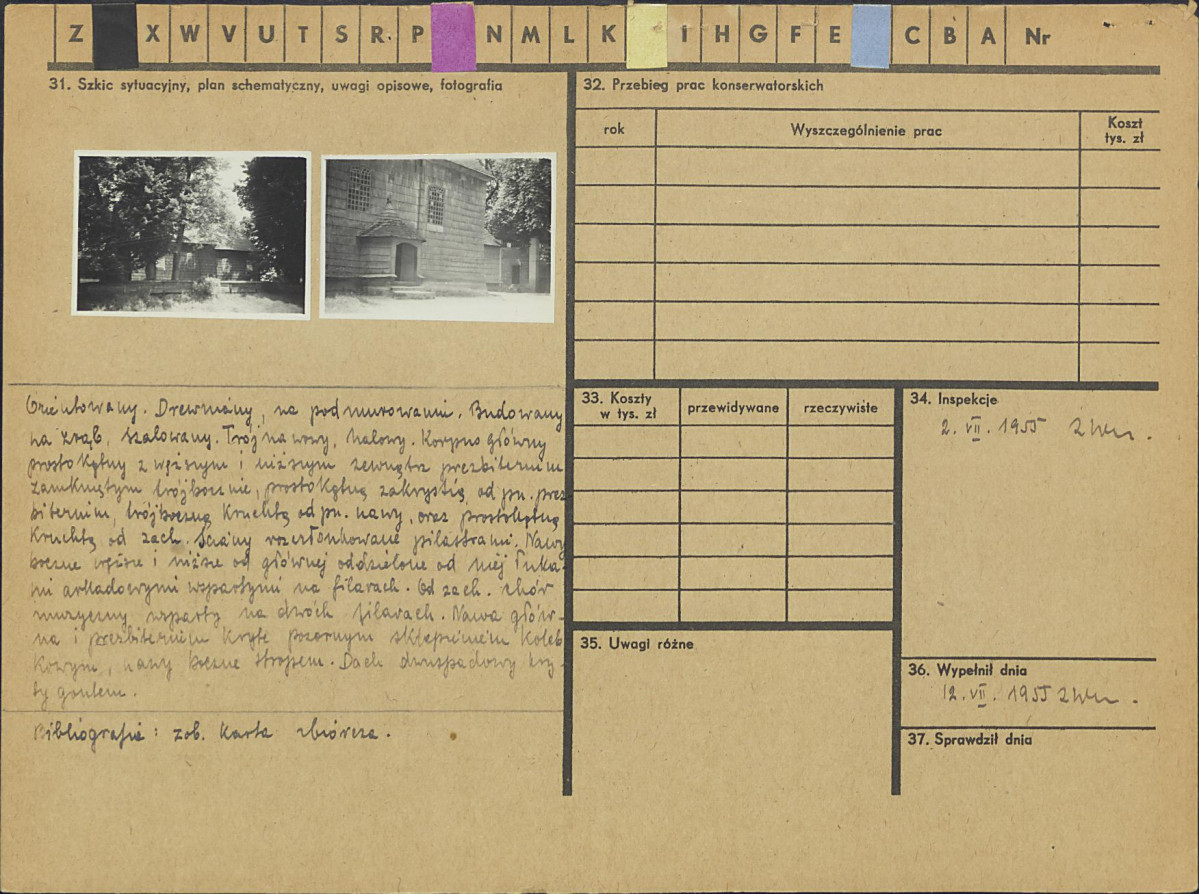 Z X W V U T S R P N M L K I H G F E C B A Nr
31. Szkic sytuacyjny, plan schematyczny, uwagi opisowe, fotografia
Orientowany. Drewniany, na podmurowaniu. Budowany
na zrąb, szalowany. Trójnawowy, halowy. Korpus główny
prostokątny z węższym i niższym zewnątrz prezbiterium
zamkniętym trójbocznie, prostokątną zakrystią od pn. prez
biterium, trójboczną kruchtą od pn. nawy, oraz prostokątną
kruchtą od zach. Ściany rozczłonkowane pilastrami. Nawy
boczne węższe i niższe od głównej oddzielone od niej łuka-
mi arkadowymi wspartymi na filarach. Od zach. chór
muzyczny wsparty na dwóch filarach. Nawa głów-
na i prezbiterium kryte pozornym sklepieniem koleb
kowym, nawy boczne stropem. Dach dwuspadowy kry-
ty gontem.
Bibliografia: zob. karta zbiorcza.
32. Przebieg prac konserwatorskich
rok Wyszczególnienie prac Koszt
tys. zł
33. Koszty
w tys. zł przewidywane rzeczywiste
34. Inspekcje
2. VII. 1955
35. Uwagi różne
36. Wypełnił dnia
12. VII. 1955
37. Sprawdził dnia